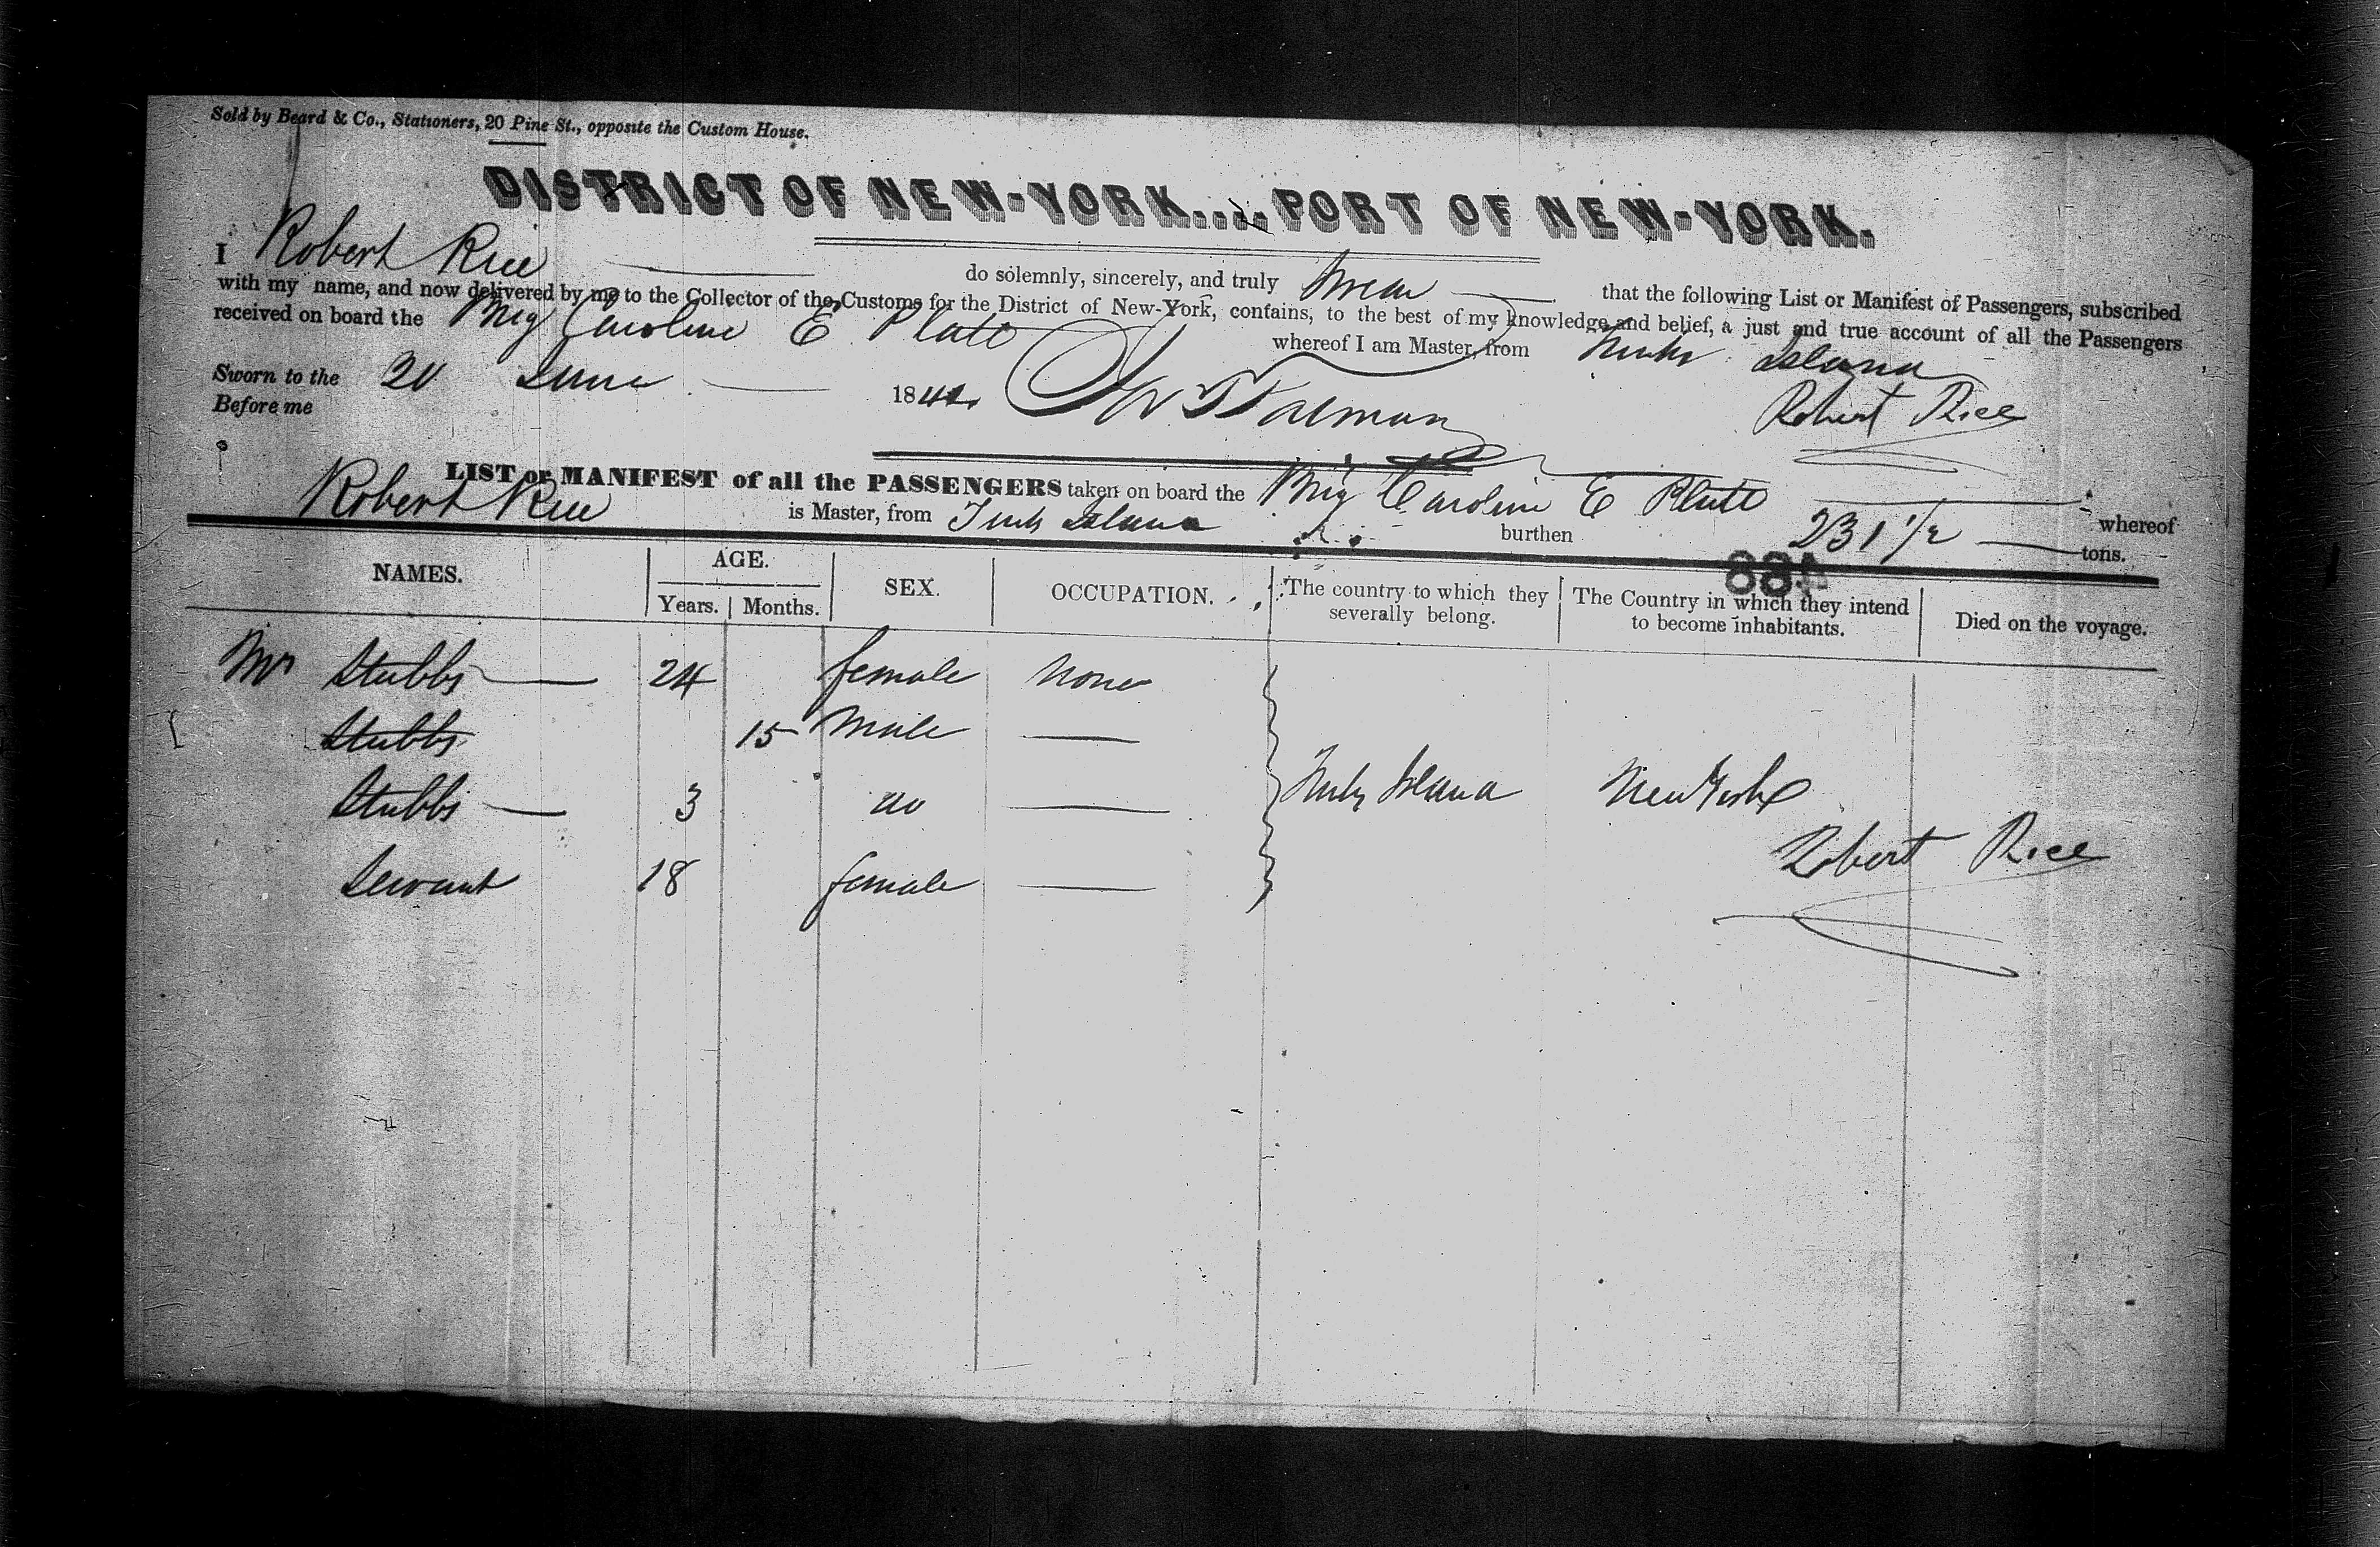 Sold by Beard & Co., Stationers, 20 Pine St., opposite the Custom House.
DISTRICT OF NEW-YORK....PORT OF NEW-YORK.
I Robert Rice do solemnly, sincerely, and truly swear that the following List or Manifest of Passengers, subscribed
with my name, and now delivered by me to the Collector of the Customs for the District of New-York, contains, to the best of my knowledge and belief, a just and true account of all the Passengers
received on board the Brig Caroline E Platt whereof I am Master, from Turks Island
Sworn to the 20 June 184
Before me
Robert Rice
LIST or MANIFEST of all the PASSENGERS taken on board the Brig Caroline E Platt whereof
Robert Rice is Master, from Turks Island burthen 231 1/2 tons.
NAMES. AGE. SEX. OCCUPATION. The country to which they severally belong. The Country in which they intend to become inhabitants. Died on the voyage.
Years. Months.
Mrs Stubbs 24 female None
Stubbs 15 Male
Stubbs 3 do Turks Island New York
Robert Rice
Servant 18 female